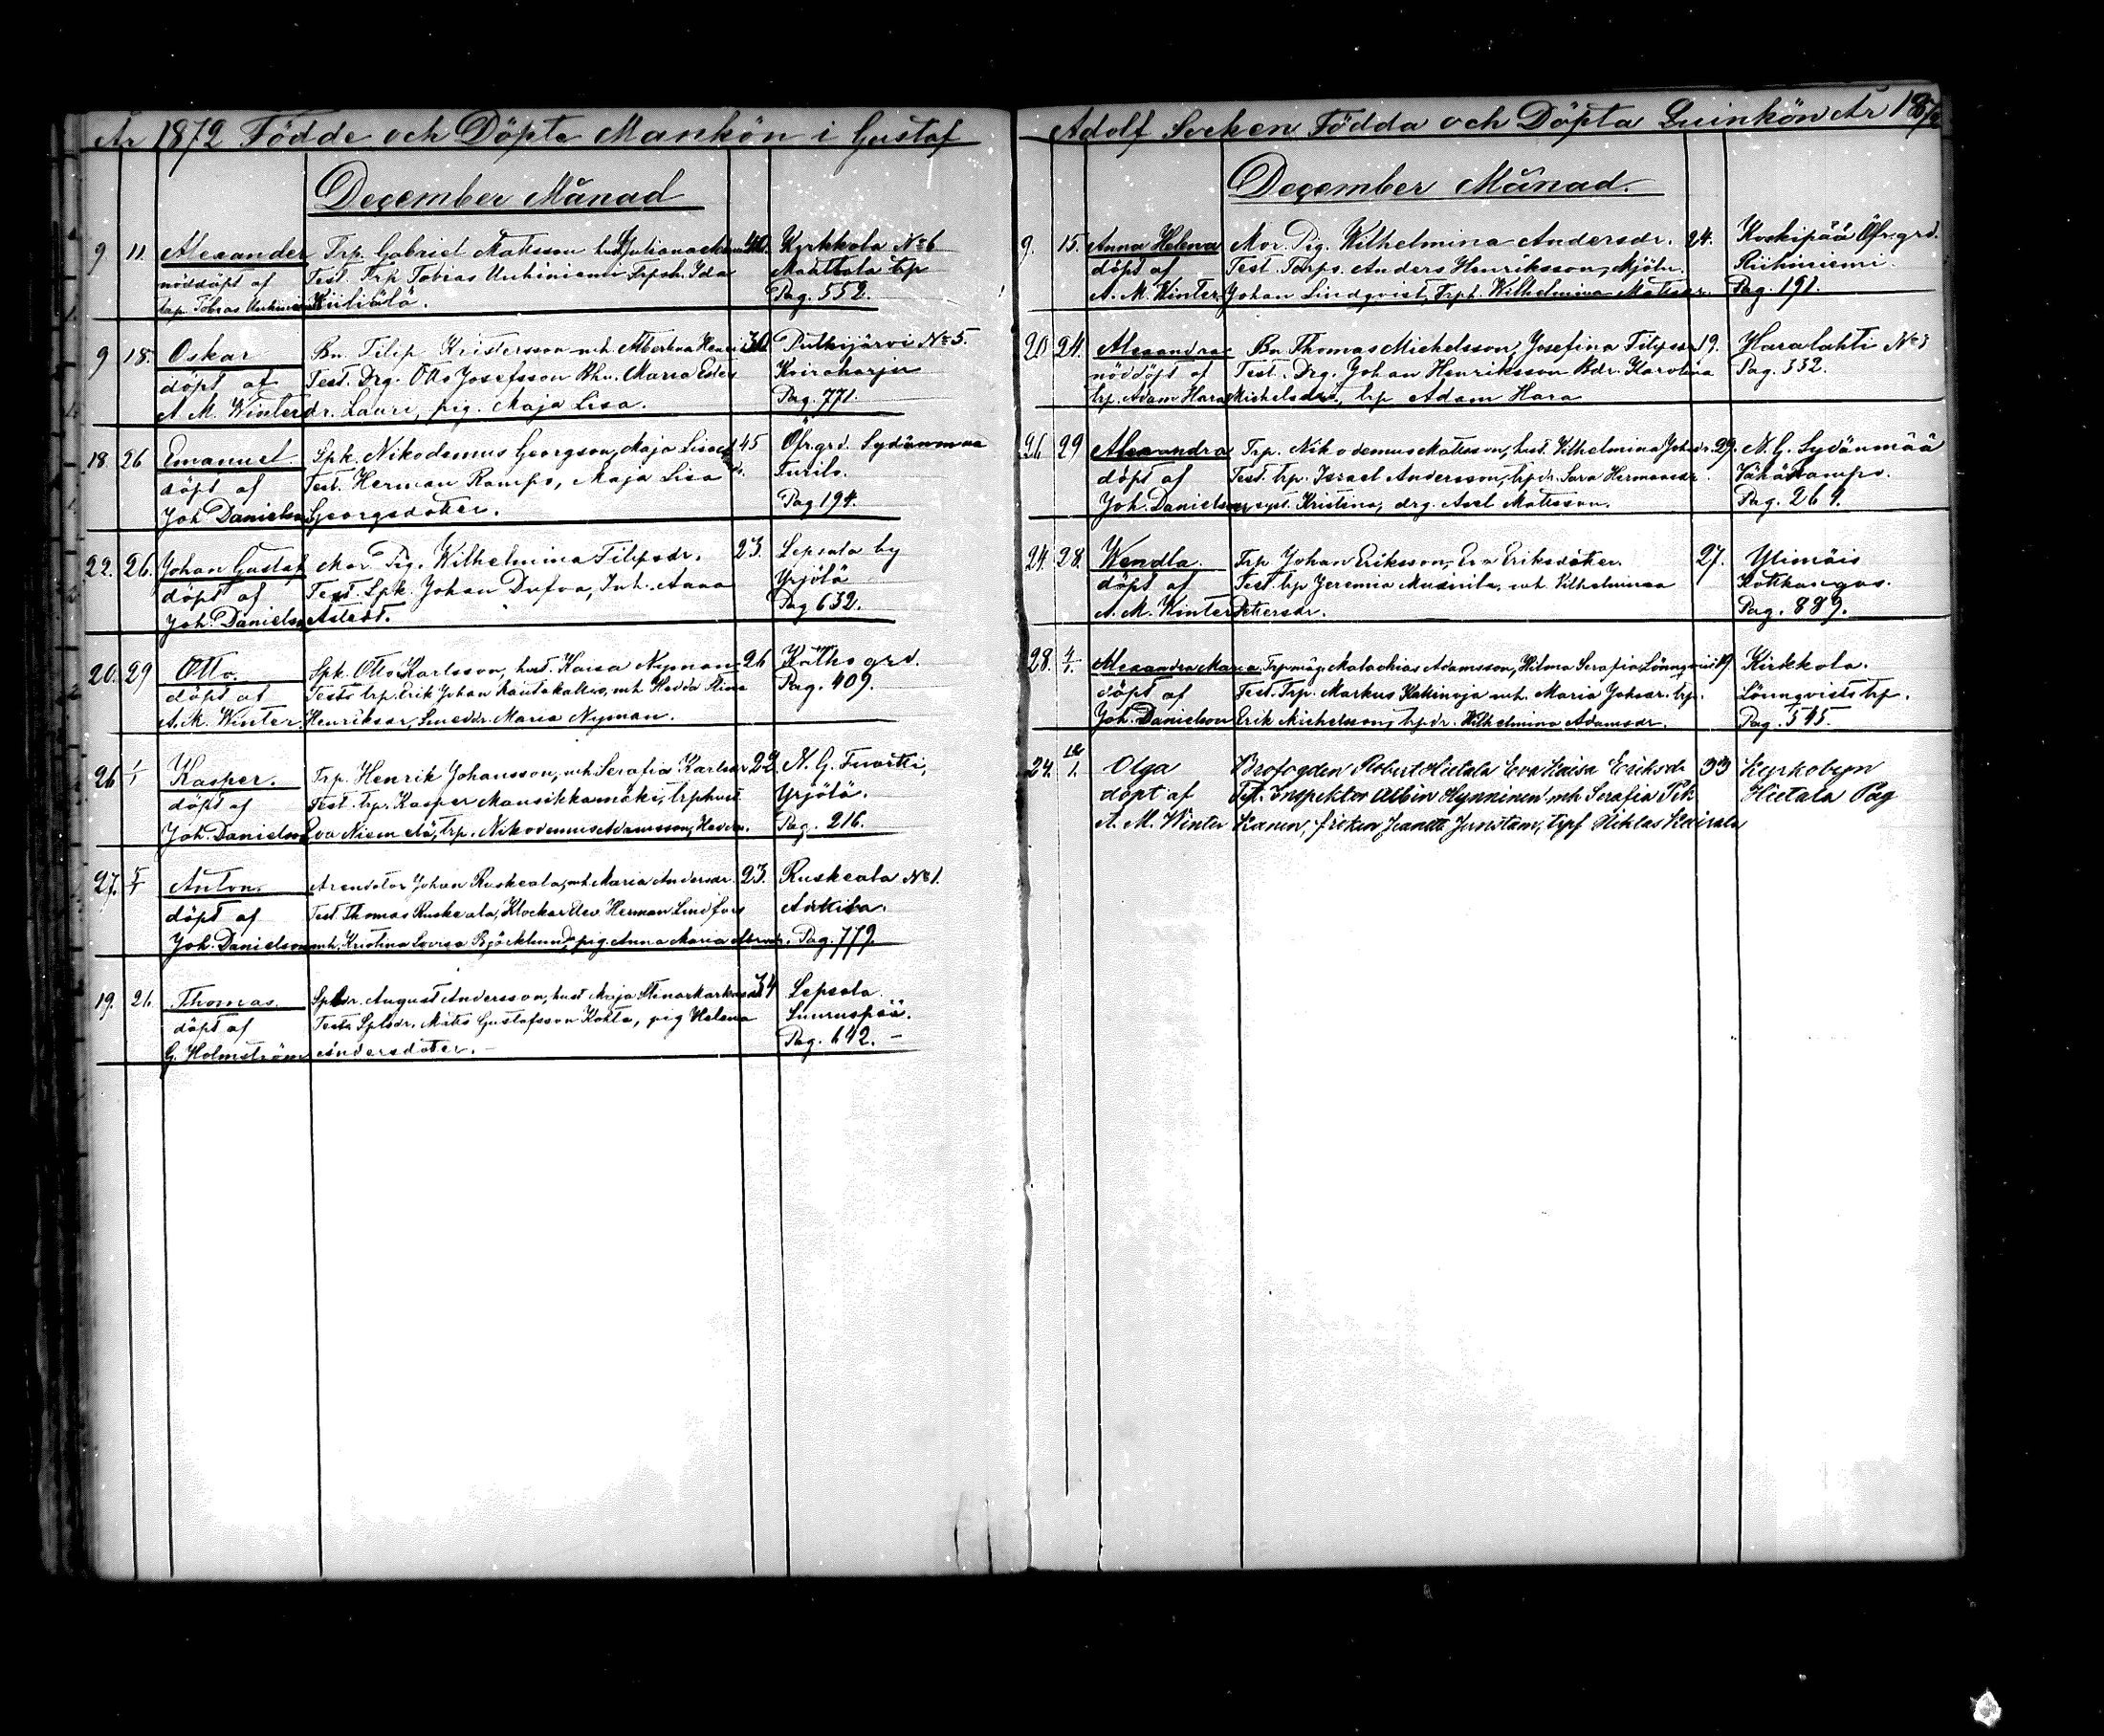 År 1872 Födde och Döpte Mankön i Gustaf
December Månad
9 11. Alexander Trp. Gabriel Matsson 40. Kyrkkola No 6
nöddöpt af Test. Trp Tobias Urhiniemi Ida Mahttala trp
trp. Tobias Urhiniemi Kiiliälä. Pag. 552.
9 18. Oskar Bn. Filip Kristersson och Albertina 30. Putkijärvi No 5.
döpt af Test. Drg. Otto Josefsson Bhu. Maria Koiraharju
A. M. Winter Lauri, pig. Maja Lisa. Pag. 771.
18. 26 Emanuel Spk. Nikodemus Georgson, Maja Lisa 45 Öfr.grd. Sydänmaa
döpt af Test. Herman Rampo, Maja Lisa Turilo.
Joh. Danielson Georgsdotter. Pag 194.
22. 26. Johan Gustaf Mor. Pig. Wilhelmina Filipsdr. 23. Sepsala by
döpt af Test. Spk. Johan Dufva, Inh. Anna Yrjölä
Joh. Danielson Astedt. Pag 632.
20. 29 Otto. Spk. Otto Karlsson, hust. Kaisa Nyman 26 Katho grd.
döpt af Test. trp. Erik Johan Rautakallio, och Hedda Stina Pag. 409.
A. M. Winter. Henriksdr, Smeddr. Maria Nyman.
26 1/1 Kasper. Trp. Henrik Johansson, och Serafia Karlsdr 22. N. G. Tuorki,
döpt af Test. trp. Kasper Mansikkamäki, trphust Yrjölä.
Joh. Danielson Eva Niemelä, trp. Nikodemus Adamsson, Pag. 216.
27. Anton. Arendator Johan Ruskeala, och Maria Andersdr. 23. Ruskeala No 1.
döpt af Test. Thomas Ruskeala, Klockar Elev Herman Lindfors Anttila.
Joh. Danielson och Kristina Lovisa Björklund, pig. Anna Maria Pag. 779.
19. 26. Thomas. August Andersson, hust Maja Stina 34 Sepsala.
döpt af Test. Mats Gustafsson Kohta, pig Helena Suuruspää.
G. Holmström Andersdotter. – Pag. 642. –
Adolf Socken Födda och Döpta Quinkön År 1872
December Månad.
9. 15. Anna Helena Mor. Pig. Wilhelmina Andersdr. 24. Koskipää Öfr.grd.
döpt af Test. Torps. Anders Henriksson, Mjöln. Riihiniemi.
A. M. Winter Johan Lindqvist, Trph. Wilhelmina Matsdr. Pag. 191.
20 24. Alexandra Bn. Thomas Michelsson, Josefina Filipsdr 19. Haralahti No 3
nöddöpt af Test. Drg. Johan Henriksson Bdr. Karolina Pag. 332.
trp. Adam Hara Michelsdr, trp Adam Hara
26 29 Alexandra Trp. Nikodemus Matsson, hust. Wilhelmina Johsdr. 29. N. G. Sydänmää
döpt af Test. trp. Israel Andersson, trpdr. Sara Hermansdr. Vähärampo.
Joh. Danielson, syst. Kristina, drg. Axel Matsson. Pag. 269.
24. 28. Wendla. Trp Johan Eriksson, Eva Eriksdotter. 27. Ylimäis
döpt af Test. trp Jeremia och Wilhelmina Kotkangas.
A. M. Winter Pettersdr. Pag. 889.
28. 4/1. Alexandra Maria Trpmåg. Malachias Adamsson, Hilma Serafia Lönnqvist 19. Kirkkola.
döpt af Test. Trp. Markus Kahinoja och. Maria Johsdr. trp. Lönnqvists trp.
Joh. Danielson Erik Michelsson, trpdr. Wilhelmina Adamsdr. Pag. 545.
24. Olga Brofogden Robert Hietala Eva Kaisa Eriksdr 33 Kyrkobyn
döpt af Test. Inspektor Albin Hynninen och Serafia Pik Hietala Pag
A. M. Winter Kanen, fröken Jeanette Jernstam, trpf Niklas